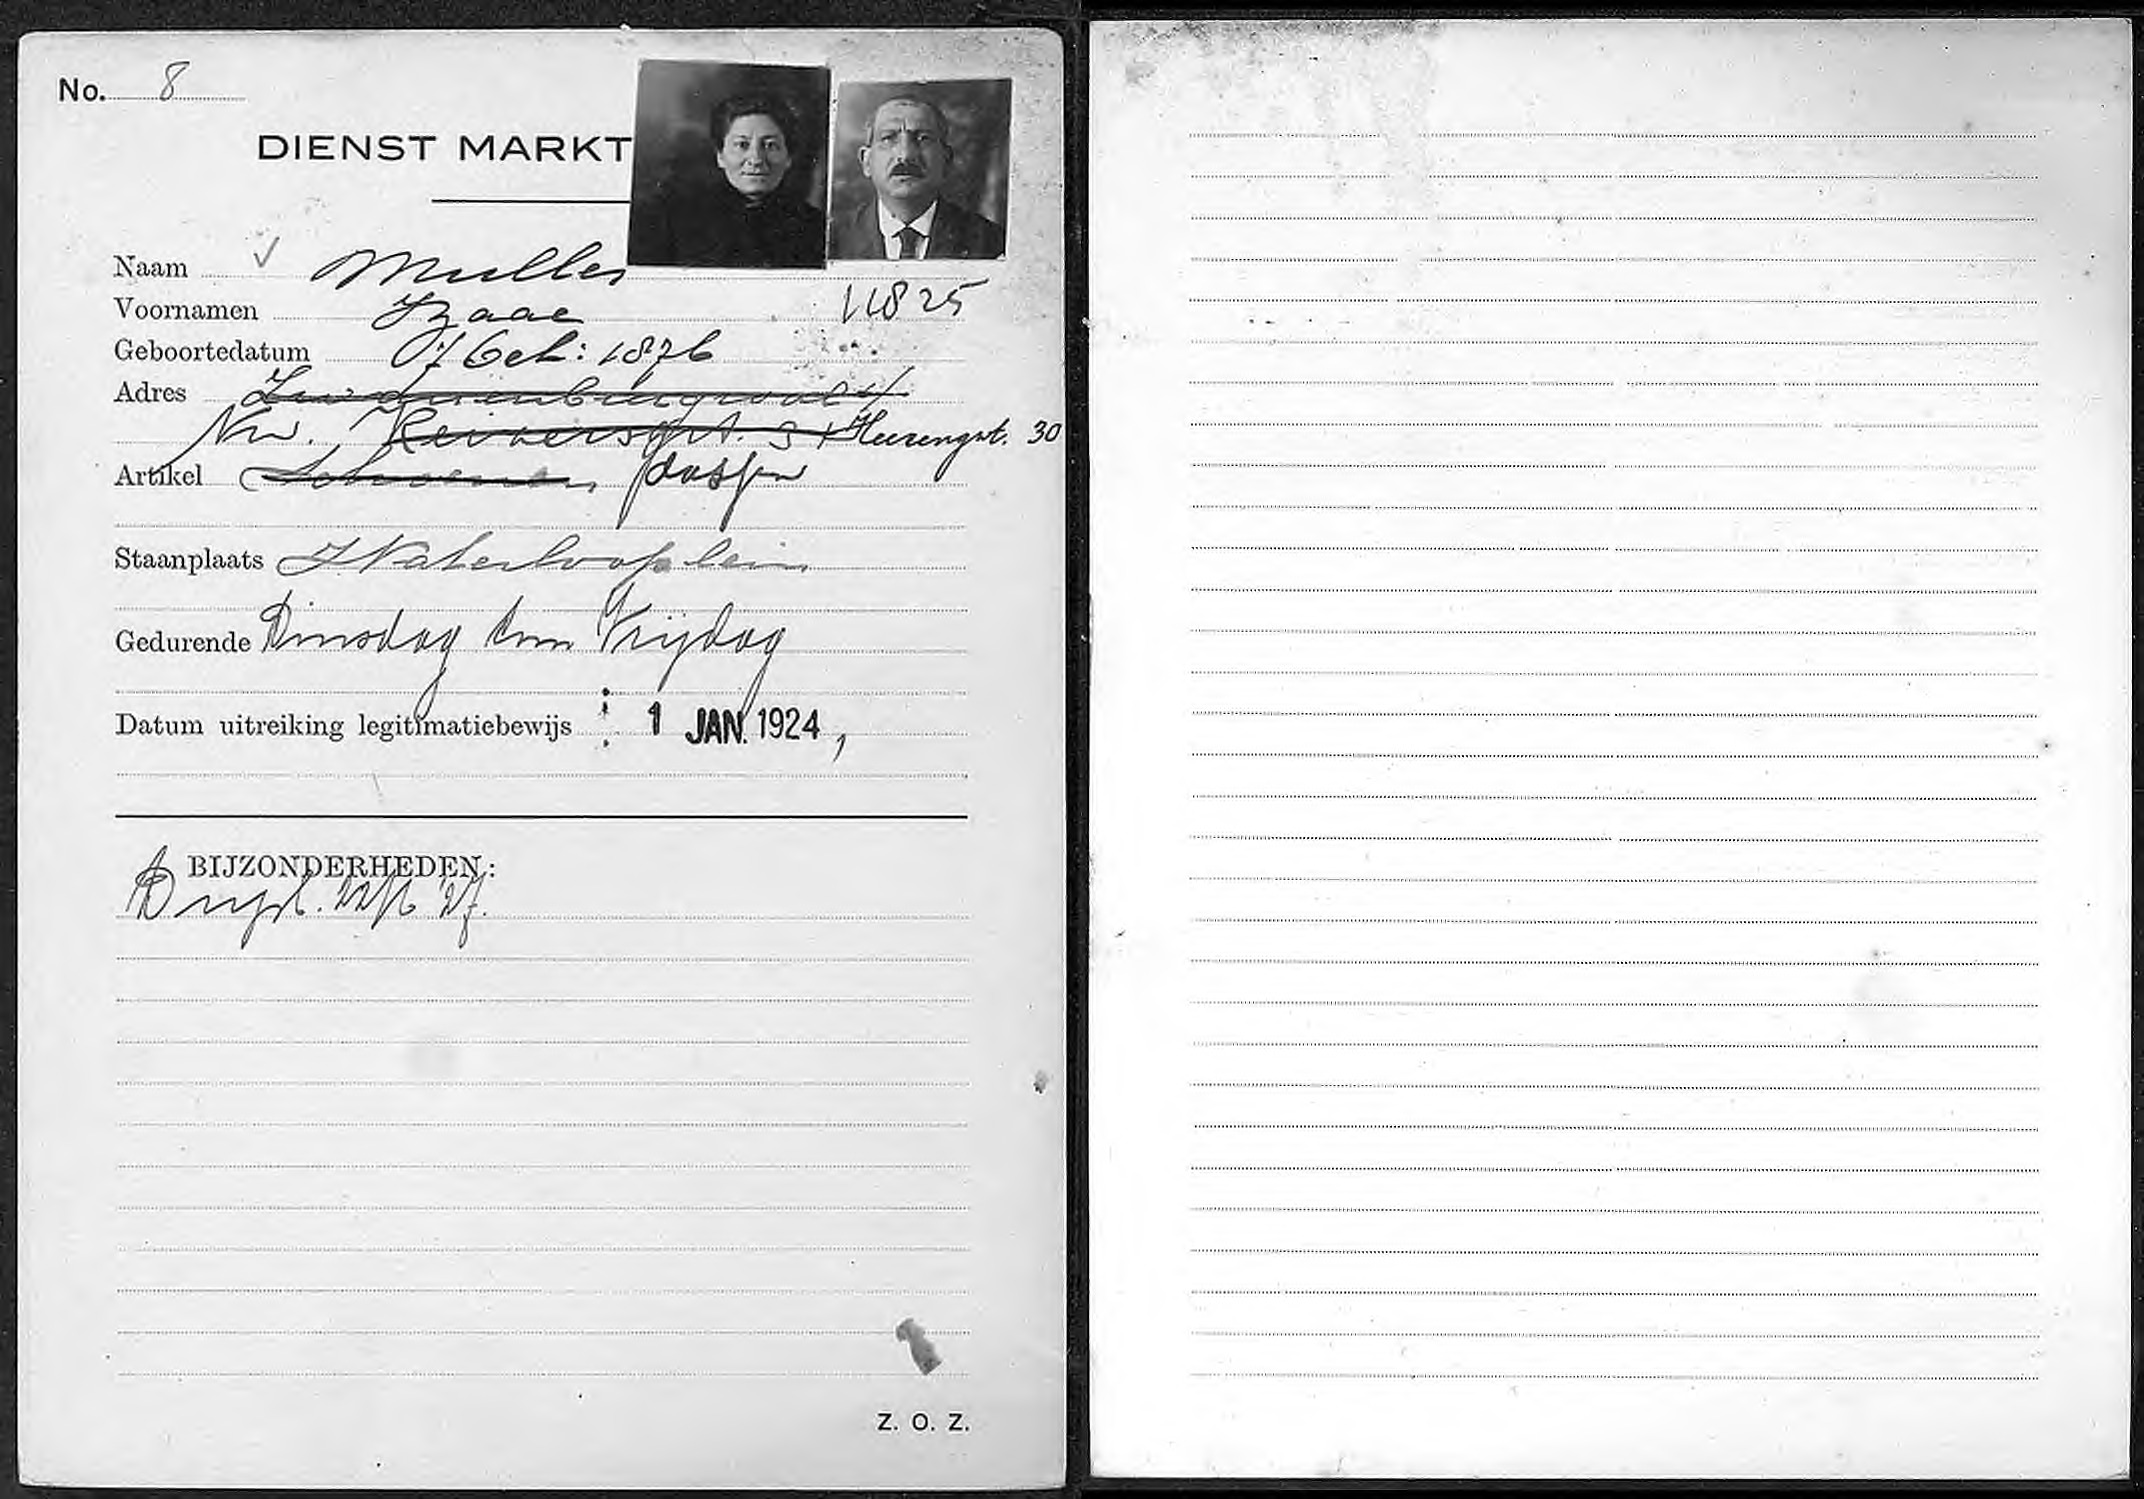 No. 8
DIENST MARKT
Naam Muller
Voornamen Izaac
Geboortedatum 7 Oct: 1876
Adres Zwanenburgwal
Nw. Keizersgrt. 3 Heerengrt. 30
Artikel Schoenen
Staanplaats Waterlooplein
Gedurende Dinsdag t/m Vrijdag
Datum uitreiking legitimatiebewijs 1 JAN. 1924
BIJZONDERHEDEN:
Z. O. Z.